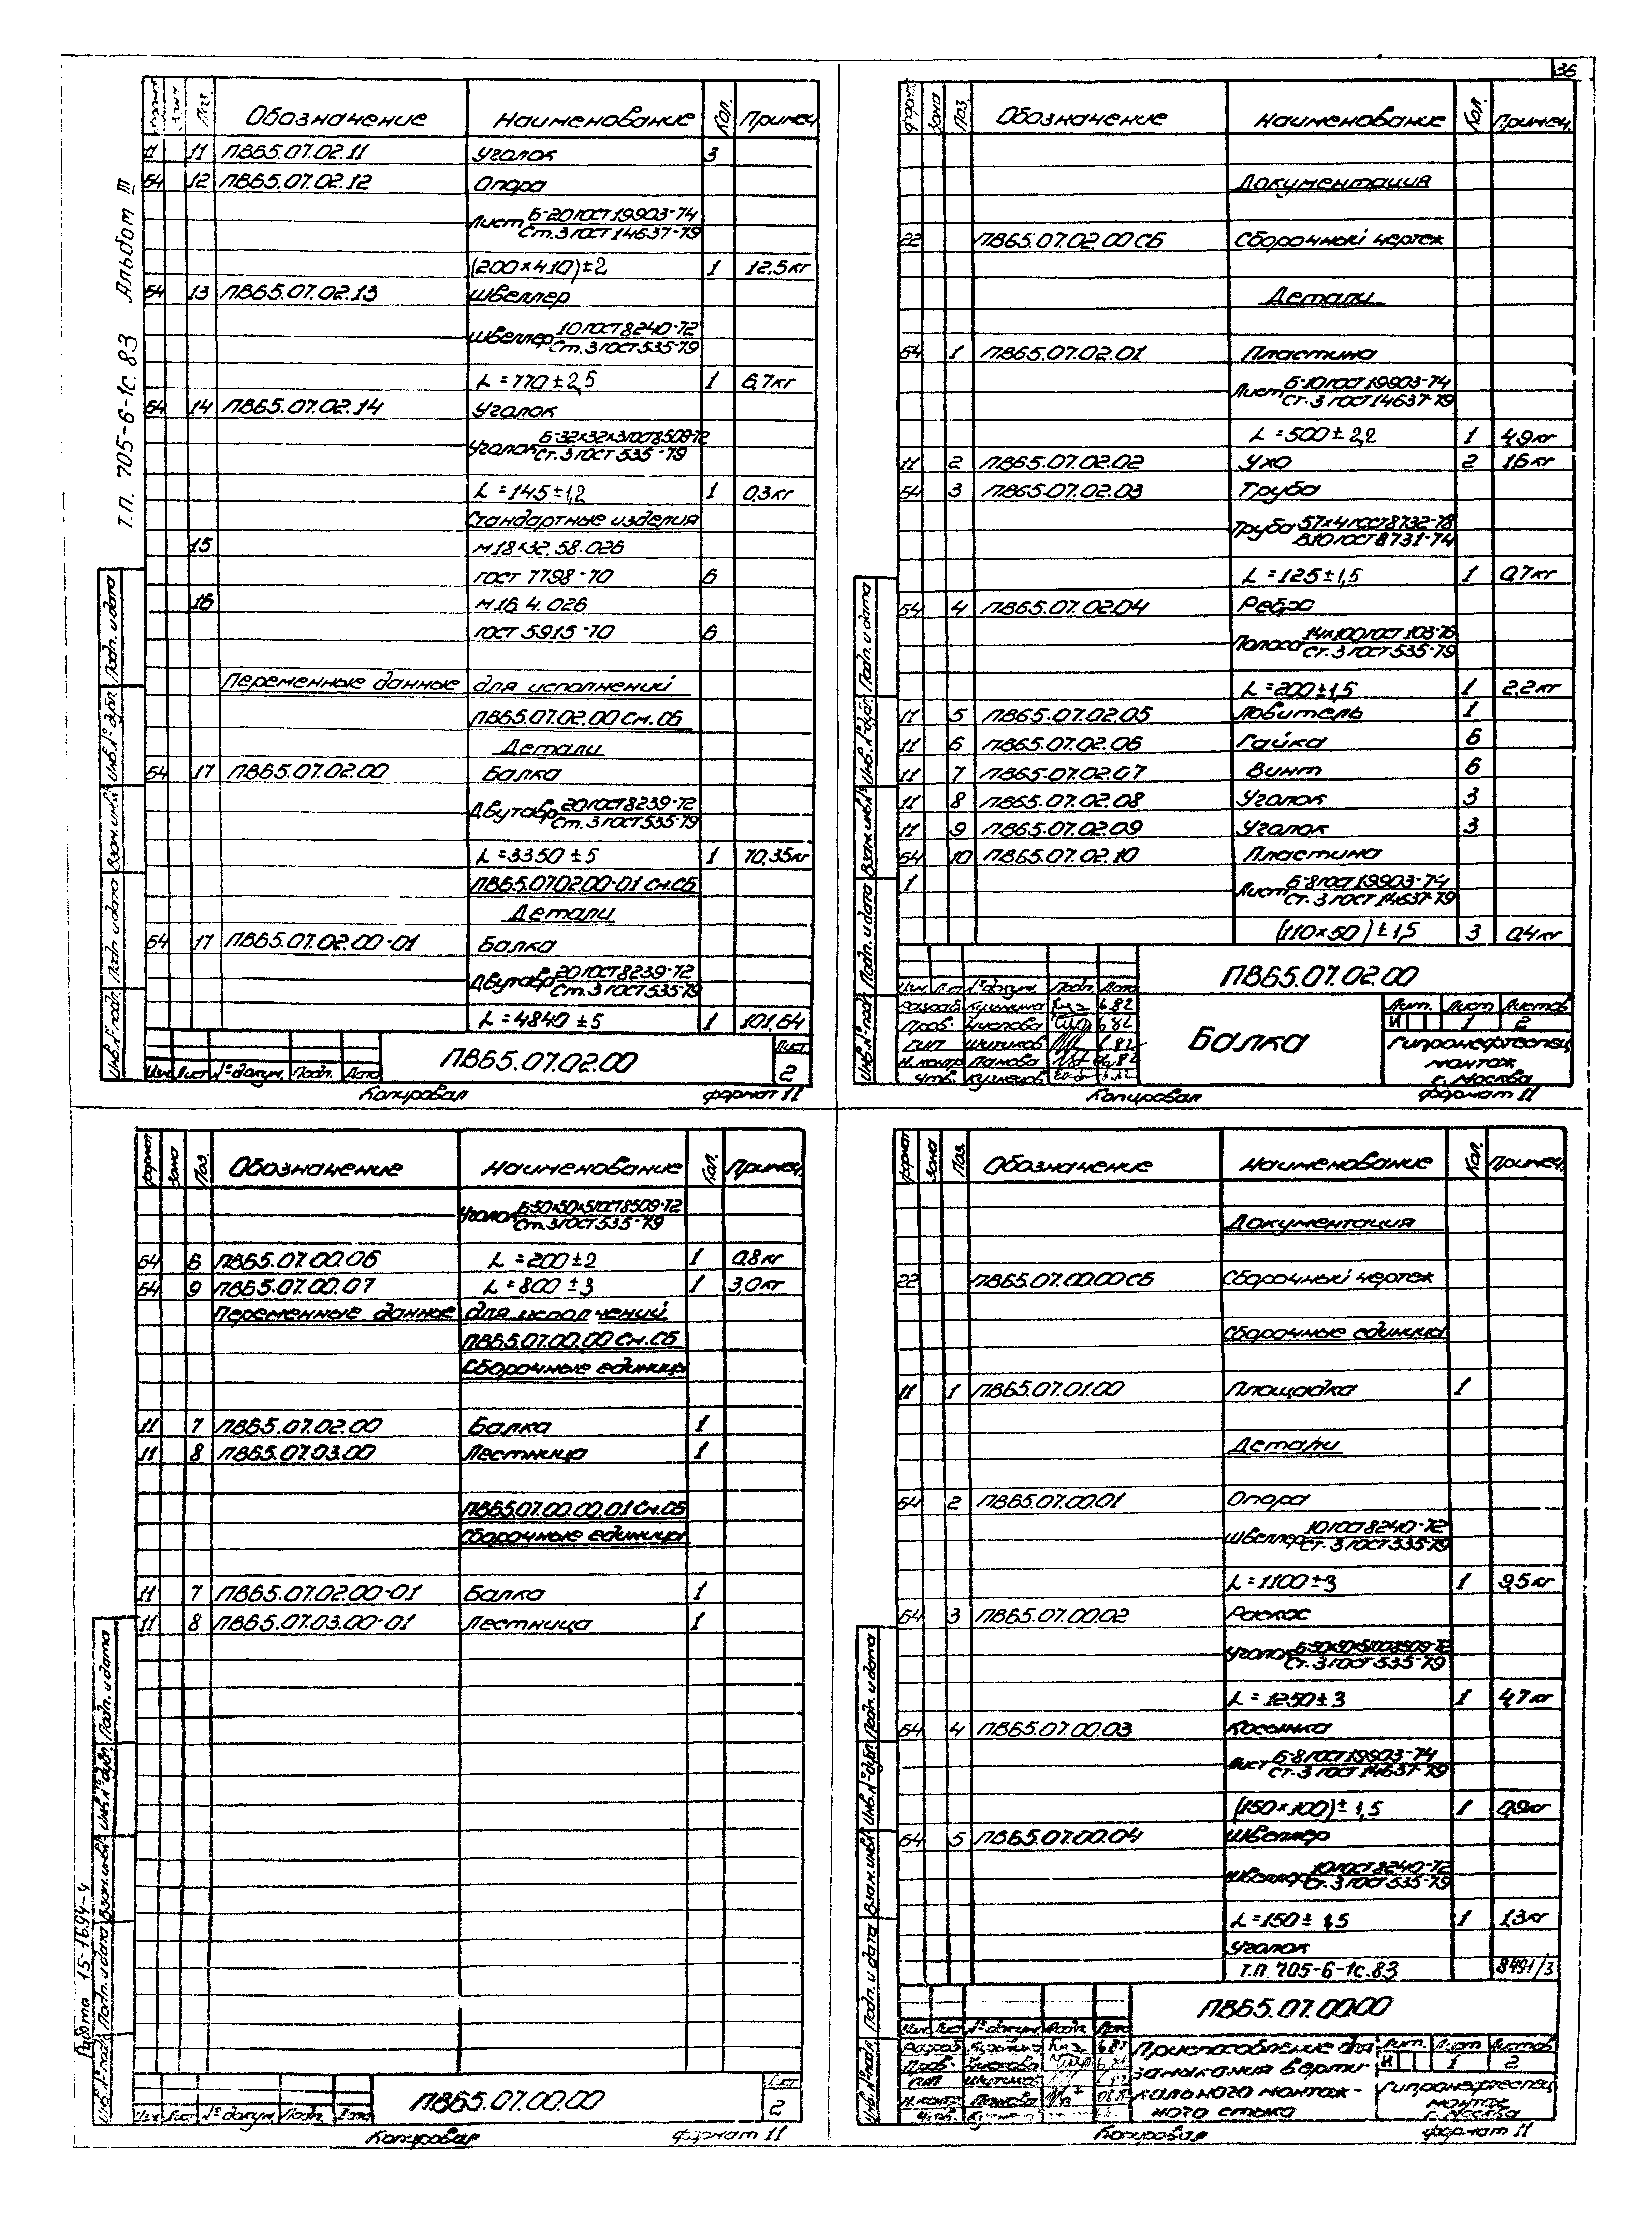 36
Т.П. 705-6-1с.83 Альбом III
Поз. Обозначение Наименование Кол. Примеч.
11 11 ПВБ5.07.02.11 Уголок 3
Б4 12 ПВБ5.07.02.12 Опора
Лист Б-20 ГОСТ 19903-74
Ст.3 ГОСТ 14637-79
(200×410)±2 1 12,5кг
Б4 13 ПВБ5.07.02.13 Швеллер
Швеллер 10 ГОСТ 8240-72
Ст.3 ГОСТ 535-79
L=770±2,5 1 6,7кг
Б4 14 ПВБ5.07.02.14 Уголок
Уголок Б-32×32×3 ГОСТ 8509-72
Ст.3 ГОСТ 535-79
L=145±1,2 1 0,3кг
Стандартные изделия
15 М18×32.58.026
ГОСТ 7798-70 6
16 М16.4.026
ГОСТ 5915-70 6
Переменные данные для исполнений
ПВБ5.07.02.00 См.СБ
Детали
Б4 17 ПВБ5.07.02.00 Балка
Двутавр 20 ГОСТ 8239-72
Ст.3 ГОСТ 535-79
L=3350±5 1 70,35кг
ПВБ5.07.02.00-01 См.СБ
Детали
Б4 17 ПВБ5.07.02.00-01 Балка
Двутавр 20 ГОСТ 8239-72
Ст.3 ГОСТ 535-79
L=4840±5 1 101,64
Инв.№ подл. Подп. и дата Взам.инв.№ Инв.№ дубл. Подп. и дата
Изм Лист № докум. Подп. Дата
ПВБ5.07.02.00
Лист
2
Копировал формат 11
формат зона Поз. Обозначение Наименование Кол. Примеч.
Документация
22 ПВБ5.07.02.00 СБ Сборочный чертеж
Детали
Б4 1 ПВБ5.07.02.01 Пластина
Лист Б-10 ГОСТ 19903-74
Ст.3 ГОСТ 14637-79
L=500±2,2 1 4,9кг
11 2 ПВБ5.07.02.02 Ухо 2 1,6кг
Б4 3 ПВБ5.07.02.03 Труба
Труба 57×4 ГОСТ 8732-78
В10 ГОСТ 8731-74
L=125±1,5 1 0,7кг
Б4 4 ПВБ5.07.02.04 Ребро
Полоса 14×100 ГОСТ 103-76
Ст.3 ГОСТ 535-79
L=200±1,5 1 2,2кг
11 5 ПВБ5.07.02.05 Ловитель 1
11 6 ПВБ5.07.02.06 Гайка 6
11 7 ПВБ5.07.02.07 Винт 6
11 8 ПВБ5.07.02.08 Уголок 3
11 9 ПВБ5.07.02.09 Уголок 3
Б4 10 ПВБ5.07.02.10 Пластина
1 Лист Б-8 ГОСТ 19903-74
Ст.3 ГОСТ 14637-79
(110×50)±1,5 3 0,4кг
Инв.№ подл. Подп. и дата Взам.инв.№ Инв.№ дубл. Подп. и дата
ПВБ5.07.02.00
Изм. Лист № докум. Подп. Дата
Разраб. 6.82
Пров. Чистова 6.82
ГИП Шитиков 6.82
Н.контр Панова 06.82
Утв. Кузнецов
Балка
Лит. Лист Листов
И 1 2
Гипронефтеспец
монтаж
г. Москва
Копировал формат 11
формат зона Поз. Обозначение Наименование Кол. Примеч.
Уголок Б-50×50×5 ГОСТ 8509-72
Ст.3 ГОСТ 535-79
Б4 6 ПВБ5.07.00.06 L=200±2 1 0,8кг
Б4 9 ПВБ5.07.00.07 L=800±3 1 3,0кг
Переменные данные для исполнений
ПВБ5.07.00.00 См.СБ
Сборочные единицы
11 7 ПВБ5.07.02.00 Балка 1
11 8 ПВБ5.07.03.00 Лестница 1
ПВБ5.07.00.00.01 См.СБ
Сборочные единицы
11 7 ПВБ5.07.02.00-01 Балка 1
11 8 ПВБ5.07.03.00-01 Лестница 1
Работа 15-1694-4
Инв.№ подл. Подп. и дата Взам.инв.№ Инв.№ дубл. Подп. и дата
Изм Лист № докум. Подп. Дата
ПВБ5.07.00.00
Лист
2
Копировал формат 11
формат зона Поз. Обозначение Наименование Кол. Примеч.
Документация
22 ПВБ5.07.00.00 СБ Сборочный чертеж
Сборочные единицы
11 1 ПВБ5.07.01.00 Площадка 1
Детали
Б4 2 ПВБ5.07.00.01 Опора
Швеллер 10 ГОСТ 8240-72
Ст.3 ГОСТ 535-79
L=1100±3 1 9,5кг
Б4 3 ПВБ5.07.00.02 Раскос
Уголок Б-50×50×5 ГОСТ 8509-72
Ст.3 ГОСТ 535-79
L=1250±3 1 4,7кг
Б4 4 ПВБ5.07.00.03 Косынка
Лист Б-8 ГОСТ 19903-74
Ст.3 ГОСТ 14637-79
(150×100)±1,5 1 0,9кг
Б4 5 ПВБ5.07.00.04 Швеллер
Швеллер 10 ГОСТ 8240-72
Ст.3 ГОСТ 535-79
L=150±1,5 1 1,3кг
Уголок
Т.П. 705-6-1с.83 8491/3
Инв.№ подл. Подп. и дата Взам.инв.№ Инв.№ дубл. Подп. и дата
ПВБ5.07.00.00
Изм Лист № докум. Подп. Дата
Разраб
Пров. Чистова
ГИП Шитиков
Н.контр Панова
Утв.
Приспособление для
замыкания верти-
кального монтаж-
ного стыка
Лит. Лист Листов
И 1 2
Гипронефтеспец
монтаж
г. Москва
Копировал формат 11